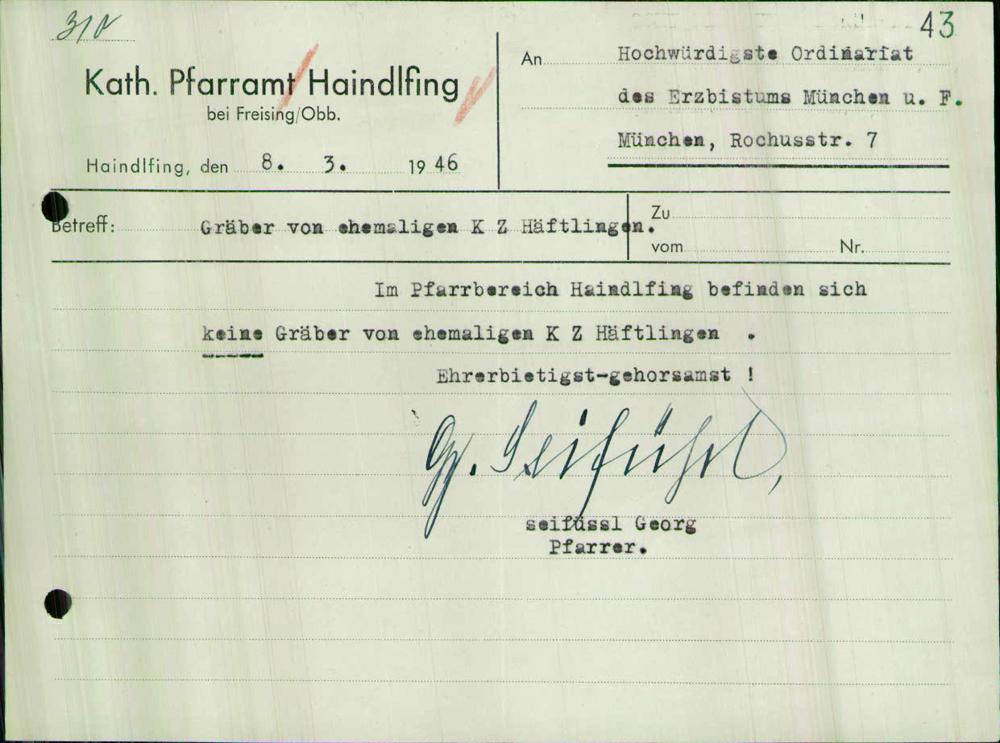 310
43
Kath. Pfarramt Haindlfing
bei Freising/Obb.
Haindlfing, den 8. 3. 1946
An Hochwürdigste Ordinariat
des Erzbistums München u. F.
München, Rochusstr. 7
Betreff: Gräber von ehemaligen K Z Häftlingen.
Zu
vom Nr.
Im Pfarrbereich Haindlfing befinden sich
keine Gräber von ehemaligen K Z Häftlingen .
Ehrerbietigst-gehorsamst !
Gg. Seifüßl,
seifüssl Georg
Pfarrer.